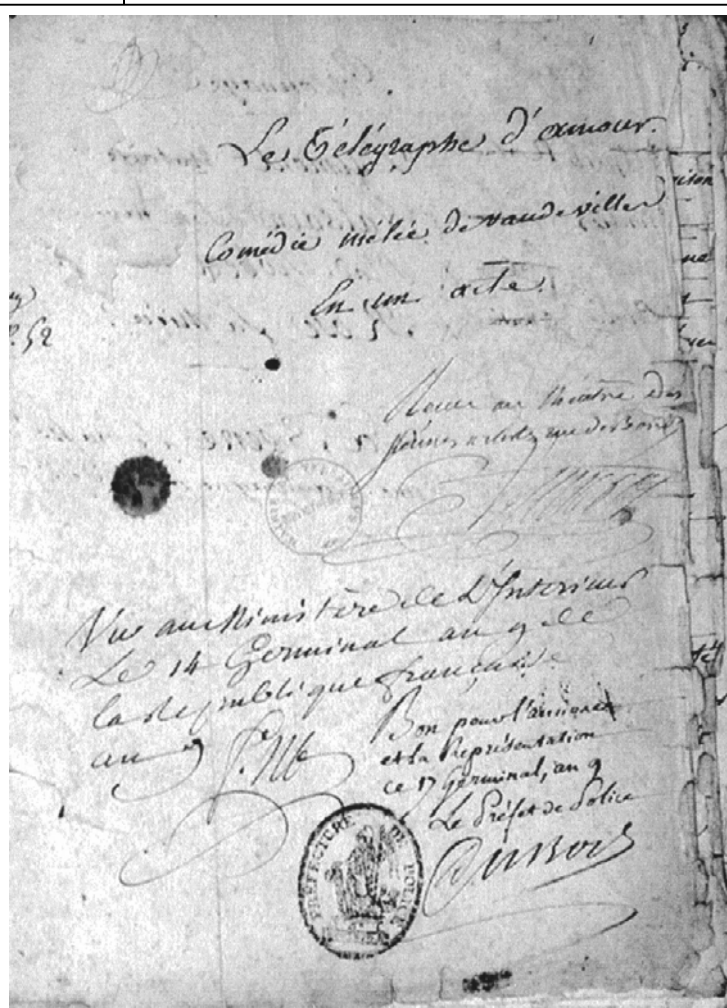 Le Télégraphe d'amour.
Comédie mêlée de vaudevilles
En un acte.
52
Reçue au théatre des
jeunes artistes rue de Bondi
Vu au Ministère de L'Interieur
Le 14 Germinal an 9 de
la republique française
an 9
Bon pour l'annonce
et la Représentation
ce 17 Germinal, an 9
Le Préfet de Police
Dubois
PRÉFECTURE DE POLICE